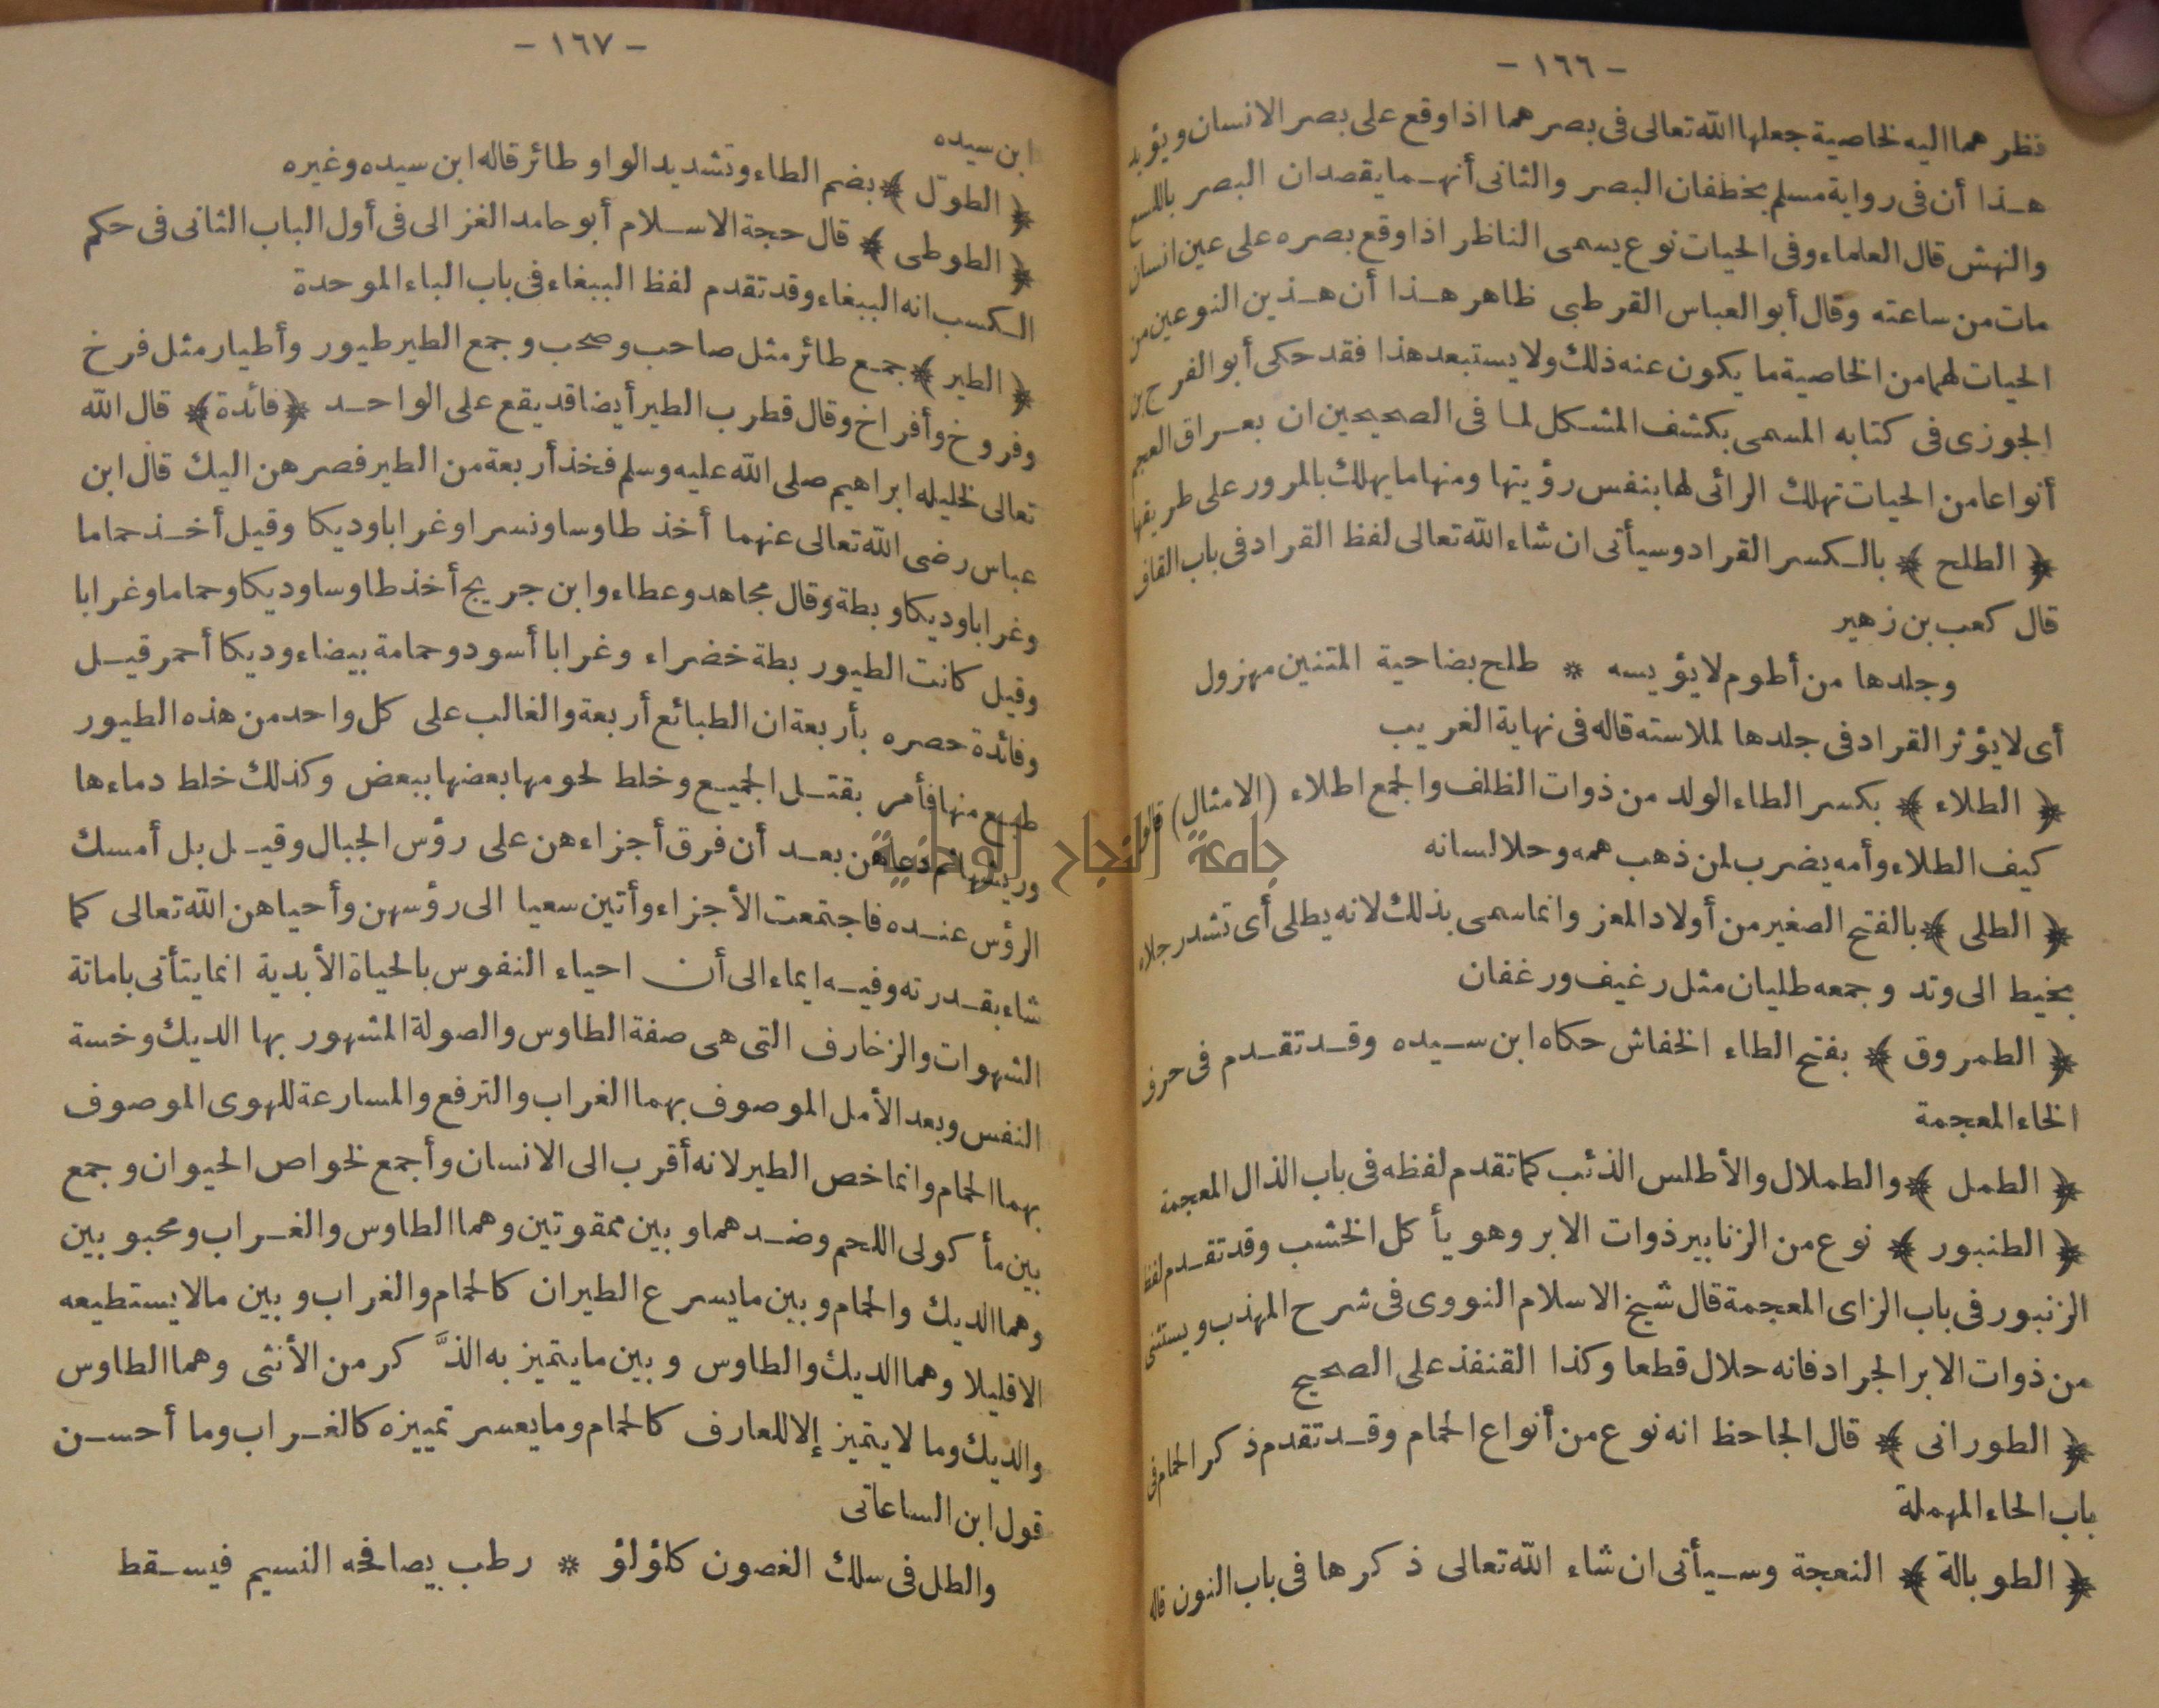 – ١٦٦ –
نظرهما اليه لخاصية جعلها الله تعالى فى بصرهما اذا وقع على بصر الانسان ويؤيد
هذا أن فى رواية مسلم يخطفان البصر والثانى أنهما يقصدان البصر باللسع
والنهش قال العلماء وفى الحيات نوع يسمى الناظر اذا وقع بصره على عين انسان
مات من ساعته وقال أبو العباس القرطبى ظاهر هذا أن هذين النوعين من
الحيات لهما من الخاصية ما يكون عنه ذلك ولا يستبعد هذا فقد حكى أبو الفرج بن
الجوزى فى كتابه المسمى بكشف المشكل لما فى الصحيحين ان بعراق العجم
أنواعا من الحيات تهلك الرائى لها بنفس رؤيتها ومنها ما يهلك بالمرور على طريقها
﴿ الطلح ﴾ بالكسر القراد وسيأتى ان شاء الله تعالى لفظ القراد فى باب القاف
قال كعب بن زهير
وجلدها من أطوم لا يؤيسه * طلح بضاحية المتنين مهزول
أى لا يؤثر القراد فى جلدها لملاسته قاله فى نهاية الغريب
﴿ الطلاء ﴾ بكسر الطاء الولد من ذوات الظلف والجمع اطلاء (الامثال) قالوا
كيف الطلاء وأمه يضرب لمن ذهب همه وحلا لسانه
﴿ الطلى ﴾ بالفتح الصغير من أولاد المعز وانما سمى بذلك لانه يطلى أى تشد رجلاه
بخيط الى وتد وجمعه طليان مثل رغيف ورغفان
﴿ الطمروق ﴾ بفتح الطاء الخفاش حكاه ابن سيده وقد تقدم فى حرف
الخاء المعجمة
﴿ الطمل ﴾ والطملال والأطلس الذئب كما تقدم لفظه فى باب الذال المعجمة
﴿ الطنبور ﴾ نوع من الزنابير ذوات الابر وهو يأكل الخشب وقد تقدم لفظ
الزنبور فى باب الزاى المعجمة قال شيخ الاسلام النووى فى شرح المهذب ويستثنى
من ذوات الابر الجراد فانه حلال قطعا وكذا القنفذ على الصحيح
﴿ الطورانى ﴾ قال الجاحظ انه نوع من أنواع الحمام وقد تقدم ذكر الحمام فى
باب الحاء المهملة
﴿ الطوبالة ﴾ النعجة وسيأتى ان شاء الله تعالى ذكرها فى باب النون قاله
– ١٦٧ –
ابن سيده
﴿ الطوّل ﴾ بضم الطاء وتشديد الواو طائر قاله ابن سيده وغيره
﴿ الطوطى ﴾ قال حجة الاسلام أبو حامد الغزالى فى أول الباب الثانى فى حكم
الكسب انه الببغاء وقد تقدم لفظ الببغاء فى باب الباء الموحدة
﴿ الطير ﴾ جمع طائر مثل صاحب وصحب وجمع الطير طيور وأطيار مثل فرخ
وفروخ وأفراخ وقال قطرب الطير أيضا قد يقع على الواحد ﴿فائدة﴾ قال الله
تعالى لخليله ابراهيم صلى الله عليه وسلم فخذ أربعة من الطير فصرهن اليك قال ابن
عباس رضى الله تعالى عنهما أخذ طاوسا ونسرا وغرابا وديكا وقيل أخذ حماما
وغرابا وديكا وبطة وقال مجاهد وعطاء وابن جريج أخذ طاوسا وديكا وحماما وغرابا
وقيل كانت الطيور بطة خضراء وغرابا أسود وحمامة بيضاء وديكا أحمر قيل
وفائدة حصره بأربعة ان الطبائع أربعة والغالب على كل واحد من هذه الطيور
طبع منها فأمر بقتل الجميع وخلط لحومها بعضها ببعض وكذلك خلط دماءها
وريشها ثم دعاهن بعد أن فرق أجزاءهن على رؤس الجبال وقيل بل أمسك
الرؤس عنده فاجتمعت الأجزاء وأتين سعيا الى رؤسهن وأحياهن الله تعالى كما
شاء بقدرته وفيه ايماء الى أن احياء النفوس بالحياة الأبدية انما يتأتى باماتة
الشهوات والزخارف التى هى صفة الطاوس والصولة المشهور بها الديك وخسة
النفس وبعد الأمل الموصوف بهما الغراب والترفع والمسارعة للهوى الموصوف
بهما الحمام وانما خص الطير لانه أقرب الى الانسان وأجمع لخواص الحيوان وجمع
بين مأكولى اللحم وضدهما وبين ممقوتين وهما الطاوس والغراب ومحبوبين
وهما الديك والحمام وبين ما يسرع الطيران كالحمام والغراب وبين ما لا يستطيعه
الا قليلا وهما الديك والطاوس وبين ما يتميز به الذَّكر من الأنثى وهما الطاوس
والديك وما لا يتميز إلا للعارف كالحمام وما يعسر تمييزه كالغراب وما أحسن
قول ابن الساعاتى
والطل فى سلك الغصون كلؤلؤ * رطب يصافحه النسيم فيسقط
جامعة النجاح الوطنية